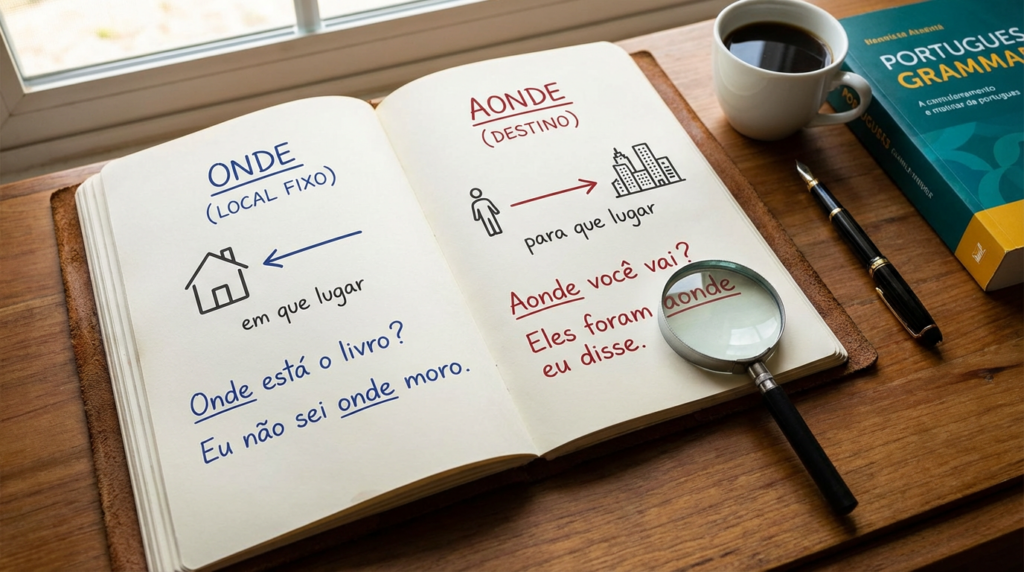 ONDE
(LOCAL FIXO)
em que lugar
Onde está o livro?
Eu não sei onde moro.
AONDE
(DESTINO)
para que lugar
Aonde você vai?
Eles foram aonde
eu disse.
PORTUGUES
GRAMMAR
de portugues